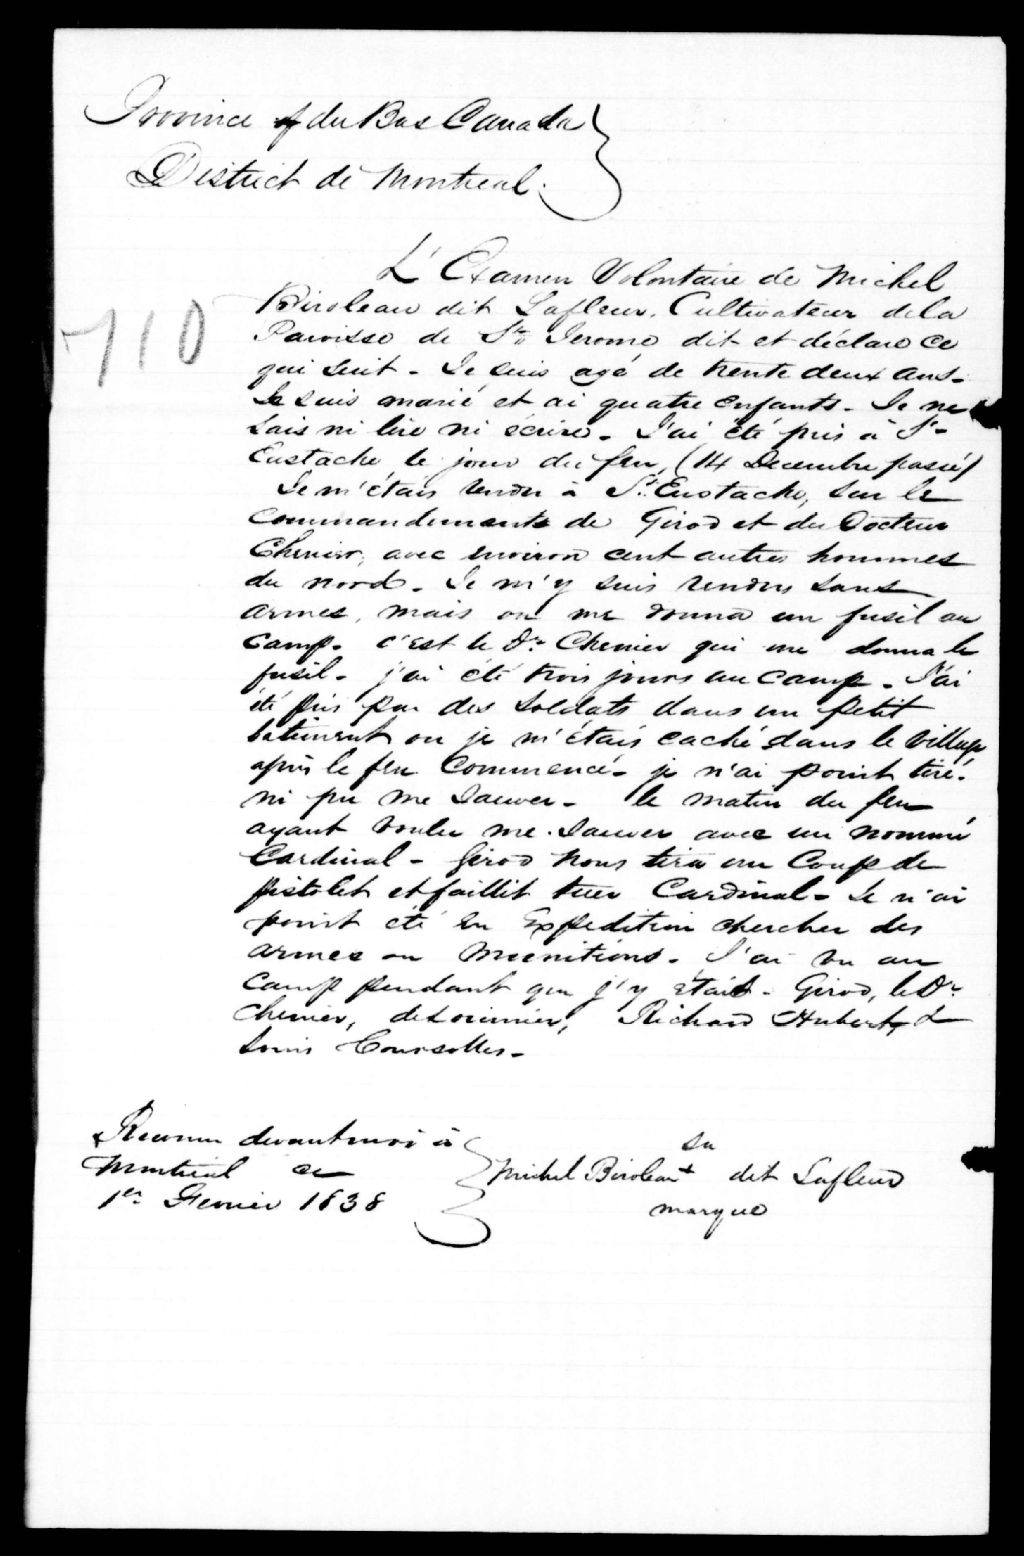 Province of du Bas Canada
District de Montreal.
710
L'Examen Volontaire de Michel
Biroleau dit Lafleur. Cultivateur de la
Paroisse de St. Jerome dit et déclare ce
qui suit - Je suis agé de trente deux ans.
Je suis marié et ai quatre enfants - Je ne
sais ni lire ni écrire - J'ai été pris à St.
Eustache le jour du feu, (14 Decembre passé)
Je m'étais rendu à St. Eustache, sur le
commandements de Girod et du Docteur
Chenier, avec environ cent autres hommes
du nord - Je m'y suis rendu sans
armes, mais on me donna un fusil au
camp - c'est le Dr. Chenier qui me donna le
fusil - j'ai été trois jours au camp - J'ai
été pris par des soldats dans un petit
batiment ou je m'étais caché dans le village
après le feu commencé - je n'ai point tiré
ni pu me sauver - le matin du feu
ayant voulu me sauver avec un nommé
Cardinal - Girod nous tira un coup de
pistolet et faillit tuer Cardinal - Je n'ai
point été en Expedition chercher des
armes ou munitions - J'ai vu au
camp pendant que j'y étais - Girod, le Dr.
Chenier, deLorimier, Richard Hubert, &
Louis Coursolles -
Reconnu devant moi à
Montreal ce
1er Fevrier 1838
sa
Michel Biroleau + dit Lafleur
marque